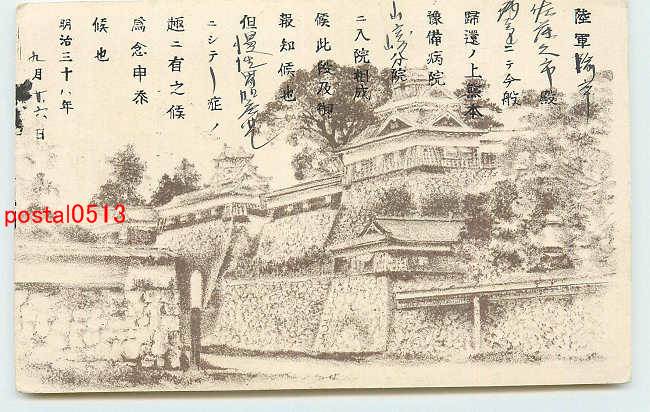 陸軍輸卒
佐藤久市殿
病気ニテ今般
歸還ノ上熊本
豫備病院
山崎分院
ニ入院相成
候此段及御
報知候也
但慢性胃腸
ニシテ一症ノ
趣ニ有之候
為念申添
候也
明治三十八年
九月十六日
postal0513